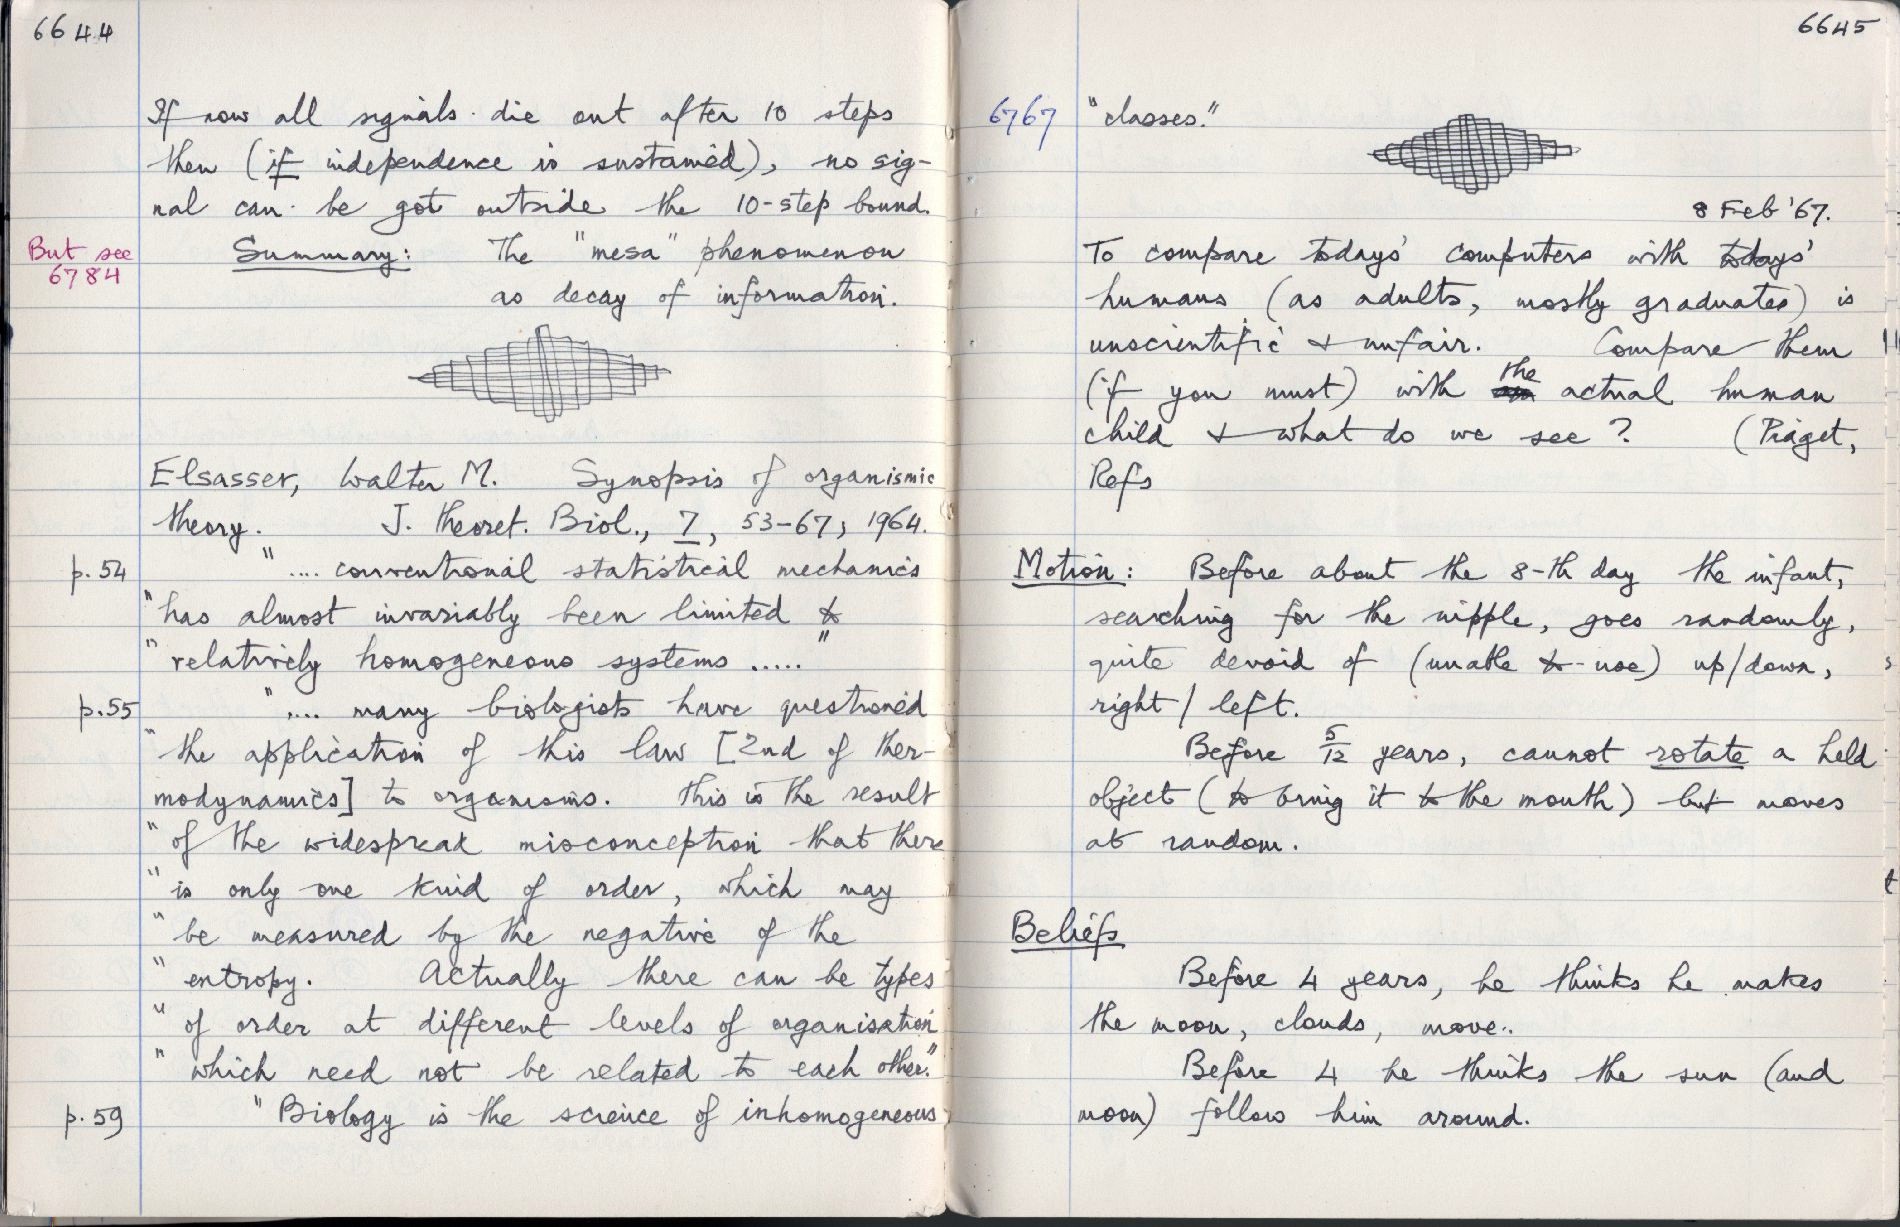 6644
If now all signals die out after 10 steps
then (if independence is sustained), no sig-
nal can be got outside the 10-step bound.
But see
6784
Summary: The "mesa" phenomenon
as decay of information.
Elsasser, Walter M. Synopsis of organismic
theory. J. theoret. Biol., 7, 53-67, 1964.
p.54 ".... conventional statistical mechanics
"has almost invariably been limited to
"relatively homogeneous systems ....."
p.55 ".... many biologists have questioned
"the application of this law [2nd of ther-
modynamics] to organisms. This is the result
"of the widespread misconception that there
"is only one kind of order, which may
"be measured by the negative of the
"entropy. Actually there can be types
"of order at different levels of organisation
"which need not be related to each other."
p.59 "Biology is the science of inhomogeneous
6645
6767 "classes."
8 Feb '67.
To compare todays' computers with todays'
humans (as adults, mostly graduates) is
unscientific & unfair. Compare them
(if you must) with the actual human
child & what do we see? (Piaget,
Refs
Motion: Before about the 8-th day the infant,
searching for the nipple, goes randomly,
quite devoid of (unable to use) up/down,
right/left.
Before 5/12 years, cannot rotate a held
object (to bring it to the mouth) but moves
at random.
Beliefs
Before 4 years, he thinks he makes
the moon, clouds, move.
Before 4 he thinks the sun (and
moon) follow him around.